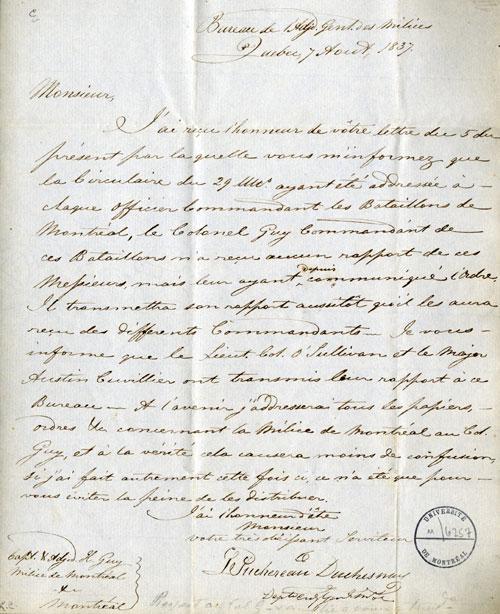 Bureau de l'Adjt. Genl. des Milices
Quebec, 7 Août, 1837.
Monsieur,
J'ai reçu l'honneur de vôtre lettre du 5 du
présent par la quelle vous m'informez que
la Circulaire du 29 Ulto. ayant été addressée à
chaque Officier Commandant les Bataillons de
Montréal, le Colonel Guy Commandant de
ces Bataillons n'a reçu aucun rapport de ces
Messieurs, mais leur ayant depuis communiqué l'Ordre,
Il transmettra son rapport aussitôt qu'il les aura
reçu des differents Commandants — Je vous
informe que le Lieut Col. O'Sullivan et le Major
Austin Cuvillier ont transmis leur rapport à ce
Bureau — A l'avenir j'addresserai tous les papiers,
ordres &c concernant la Milice de Montréal au Col.
Guy, et à la vérité cela causera moins de confusion,
si j'ai fait autrement cette fois ci, ce n'a été que pour
vous éviter la peine de les distribuer.
J'ai l'honneur d'être
Monsieur
votre très obéissant Serviteur
Ls Juchereau Duchesnay
Capt. & Adjt. H. Guy
Milice de Montréal
&c
Montréal
UNIVERSITÉ
DE MONTRÉAL
6257